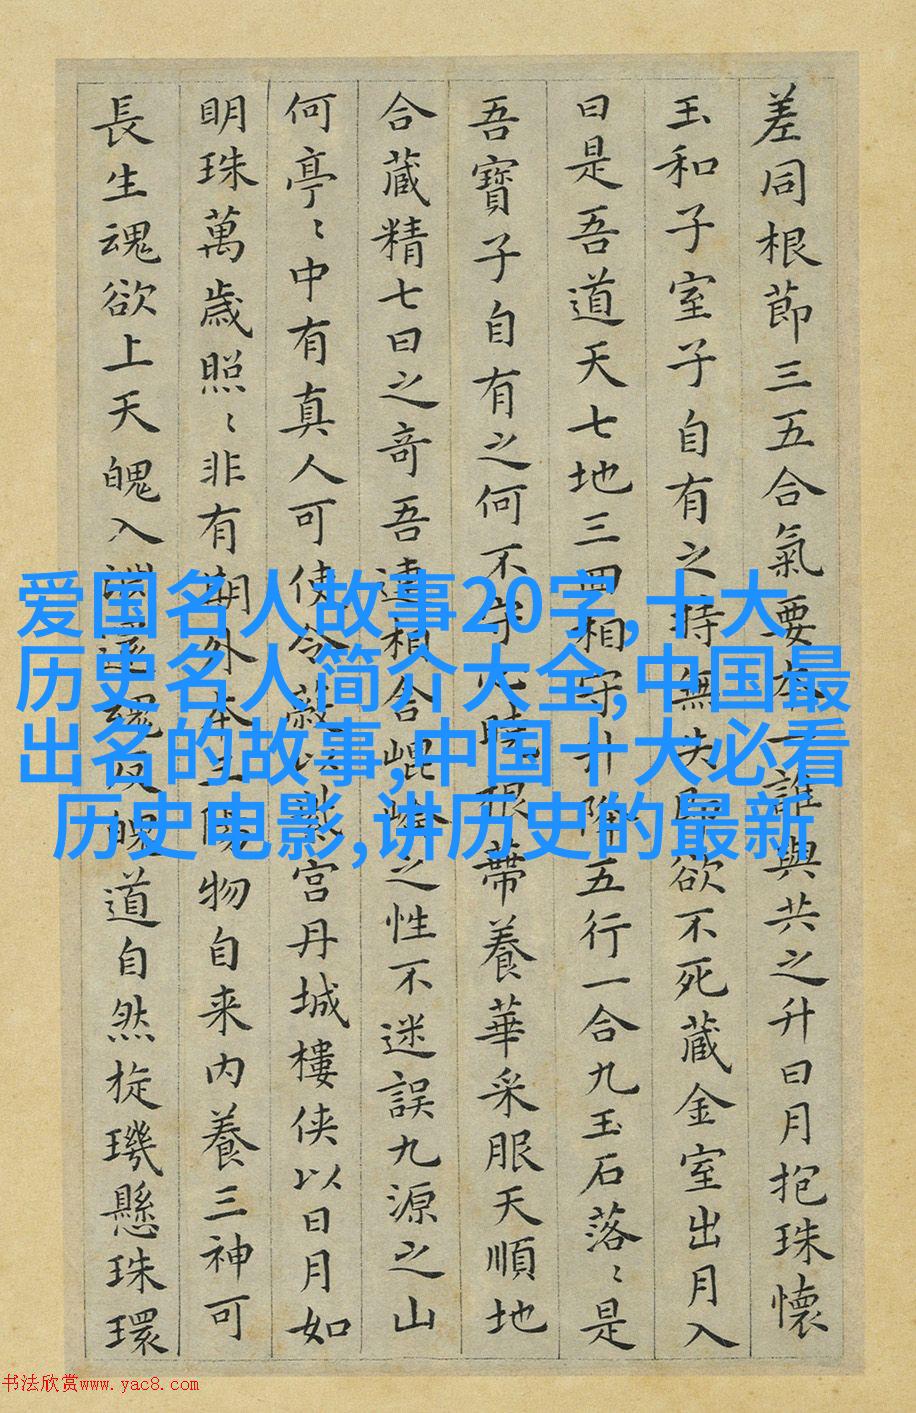 差同根節三五合氣要本一誰與共之升日月抱珠懷
玉和子室子自有之持無失即欲不死藏金室出月入
日是吾道天七地三回相守升降五行一合九玉石落〻是
吾寶子自有之何不守心曉根蒂養華采服天順地
合藏精七日之奇吾連相合崐崘之性不迷誤九源之山
何亭〻中有真人可使令蔽以紫宮丹城樓俠以日月如
明珠萬歲照〻非有期外本三陽物自来内養三神可
長生魂欲上天魄入淵還魂反魄道自然旋璣懸珠環
爱国名人故事20字,十大
历史名人简介大全,中国最
出名的故事,中国十大必看
历史电影,讲历史的最新
书法欣赏www.yac8.com